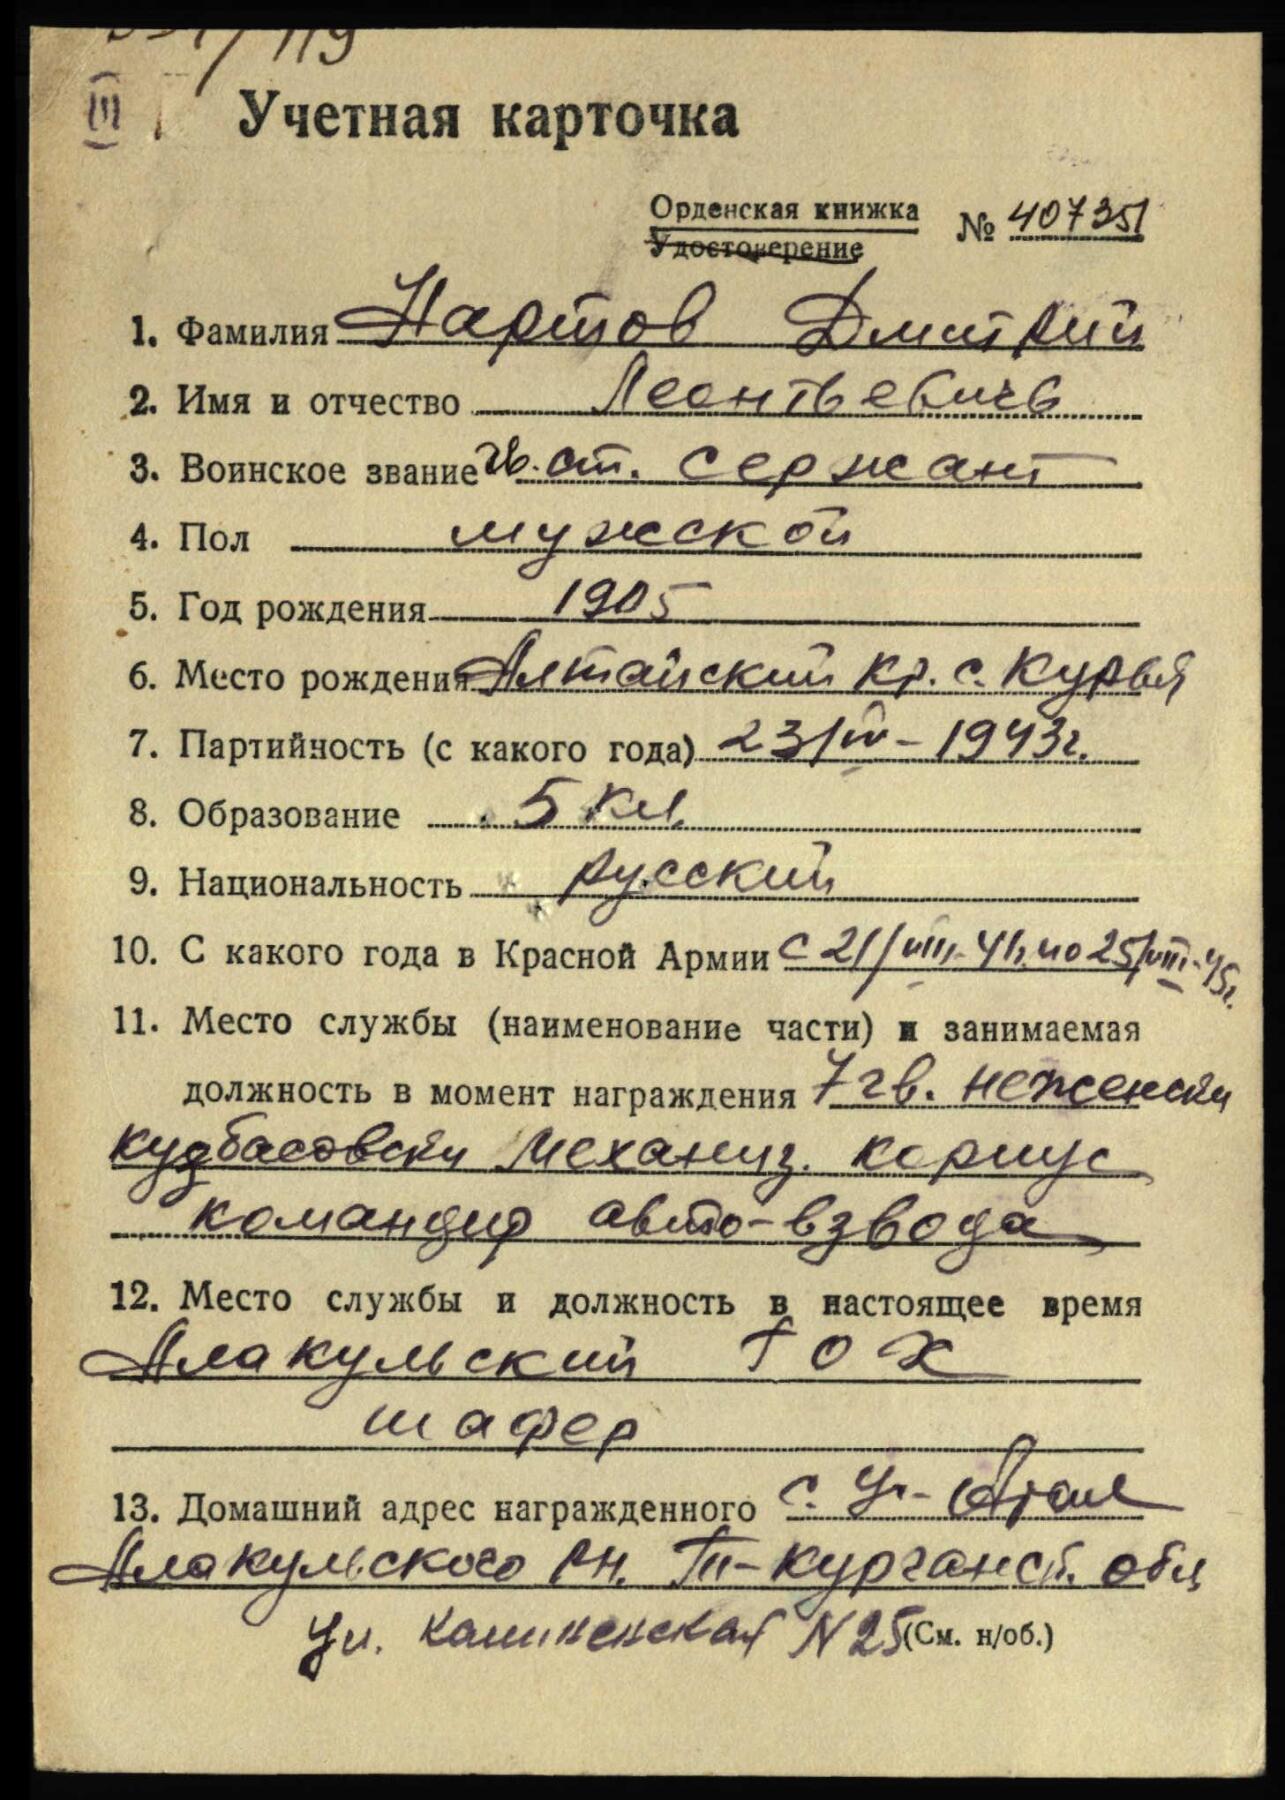 119
III
Учетная карточка
Орденская книжка
Удостоверение
№ 407351
1. Фамилия Нартов Дмитрий
2. Имя и отчество Леонтьевичь
3. Воинское звание гв. ст. сержант
4. Пол мужской
5. Год рождения 1905
6. Место рождения Алтайский кр. с. Курья
7. Партийность (с какого года) 23/IV-1943г.
8. Образование 5 кл.
9. Национальность русский
10. С какого года в Красной Армии с 21/VIII-41. по 25/VIII-45г.
11. Место службы (наименование части) и занимаемая
должность в момент награждения 7 гв. неженски
кудбасовски механиз. корпус
командир авто-взвода
12. Место службы и должность в настоящее время
Алакульский ГОХ
шафер
13. Домашний адрес награжденного с. Уч-Арал
Алакульского рн. Т-Курганск. обл
ул. Калиненская N 25 (См. н/об.)